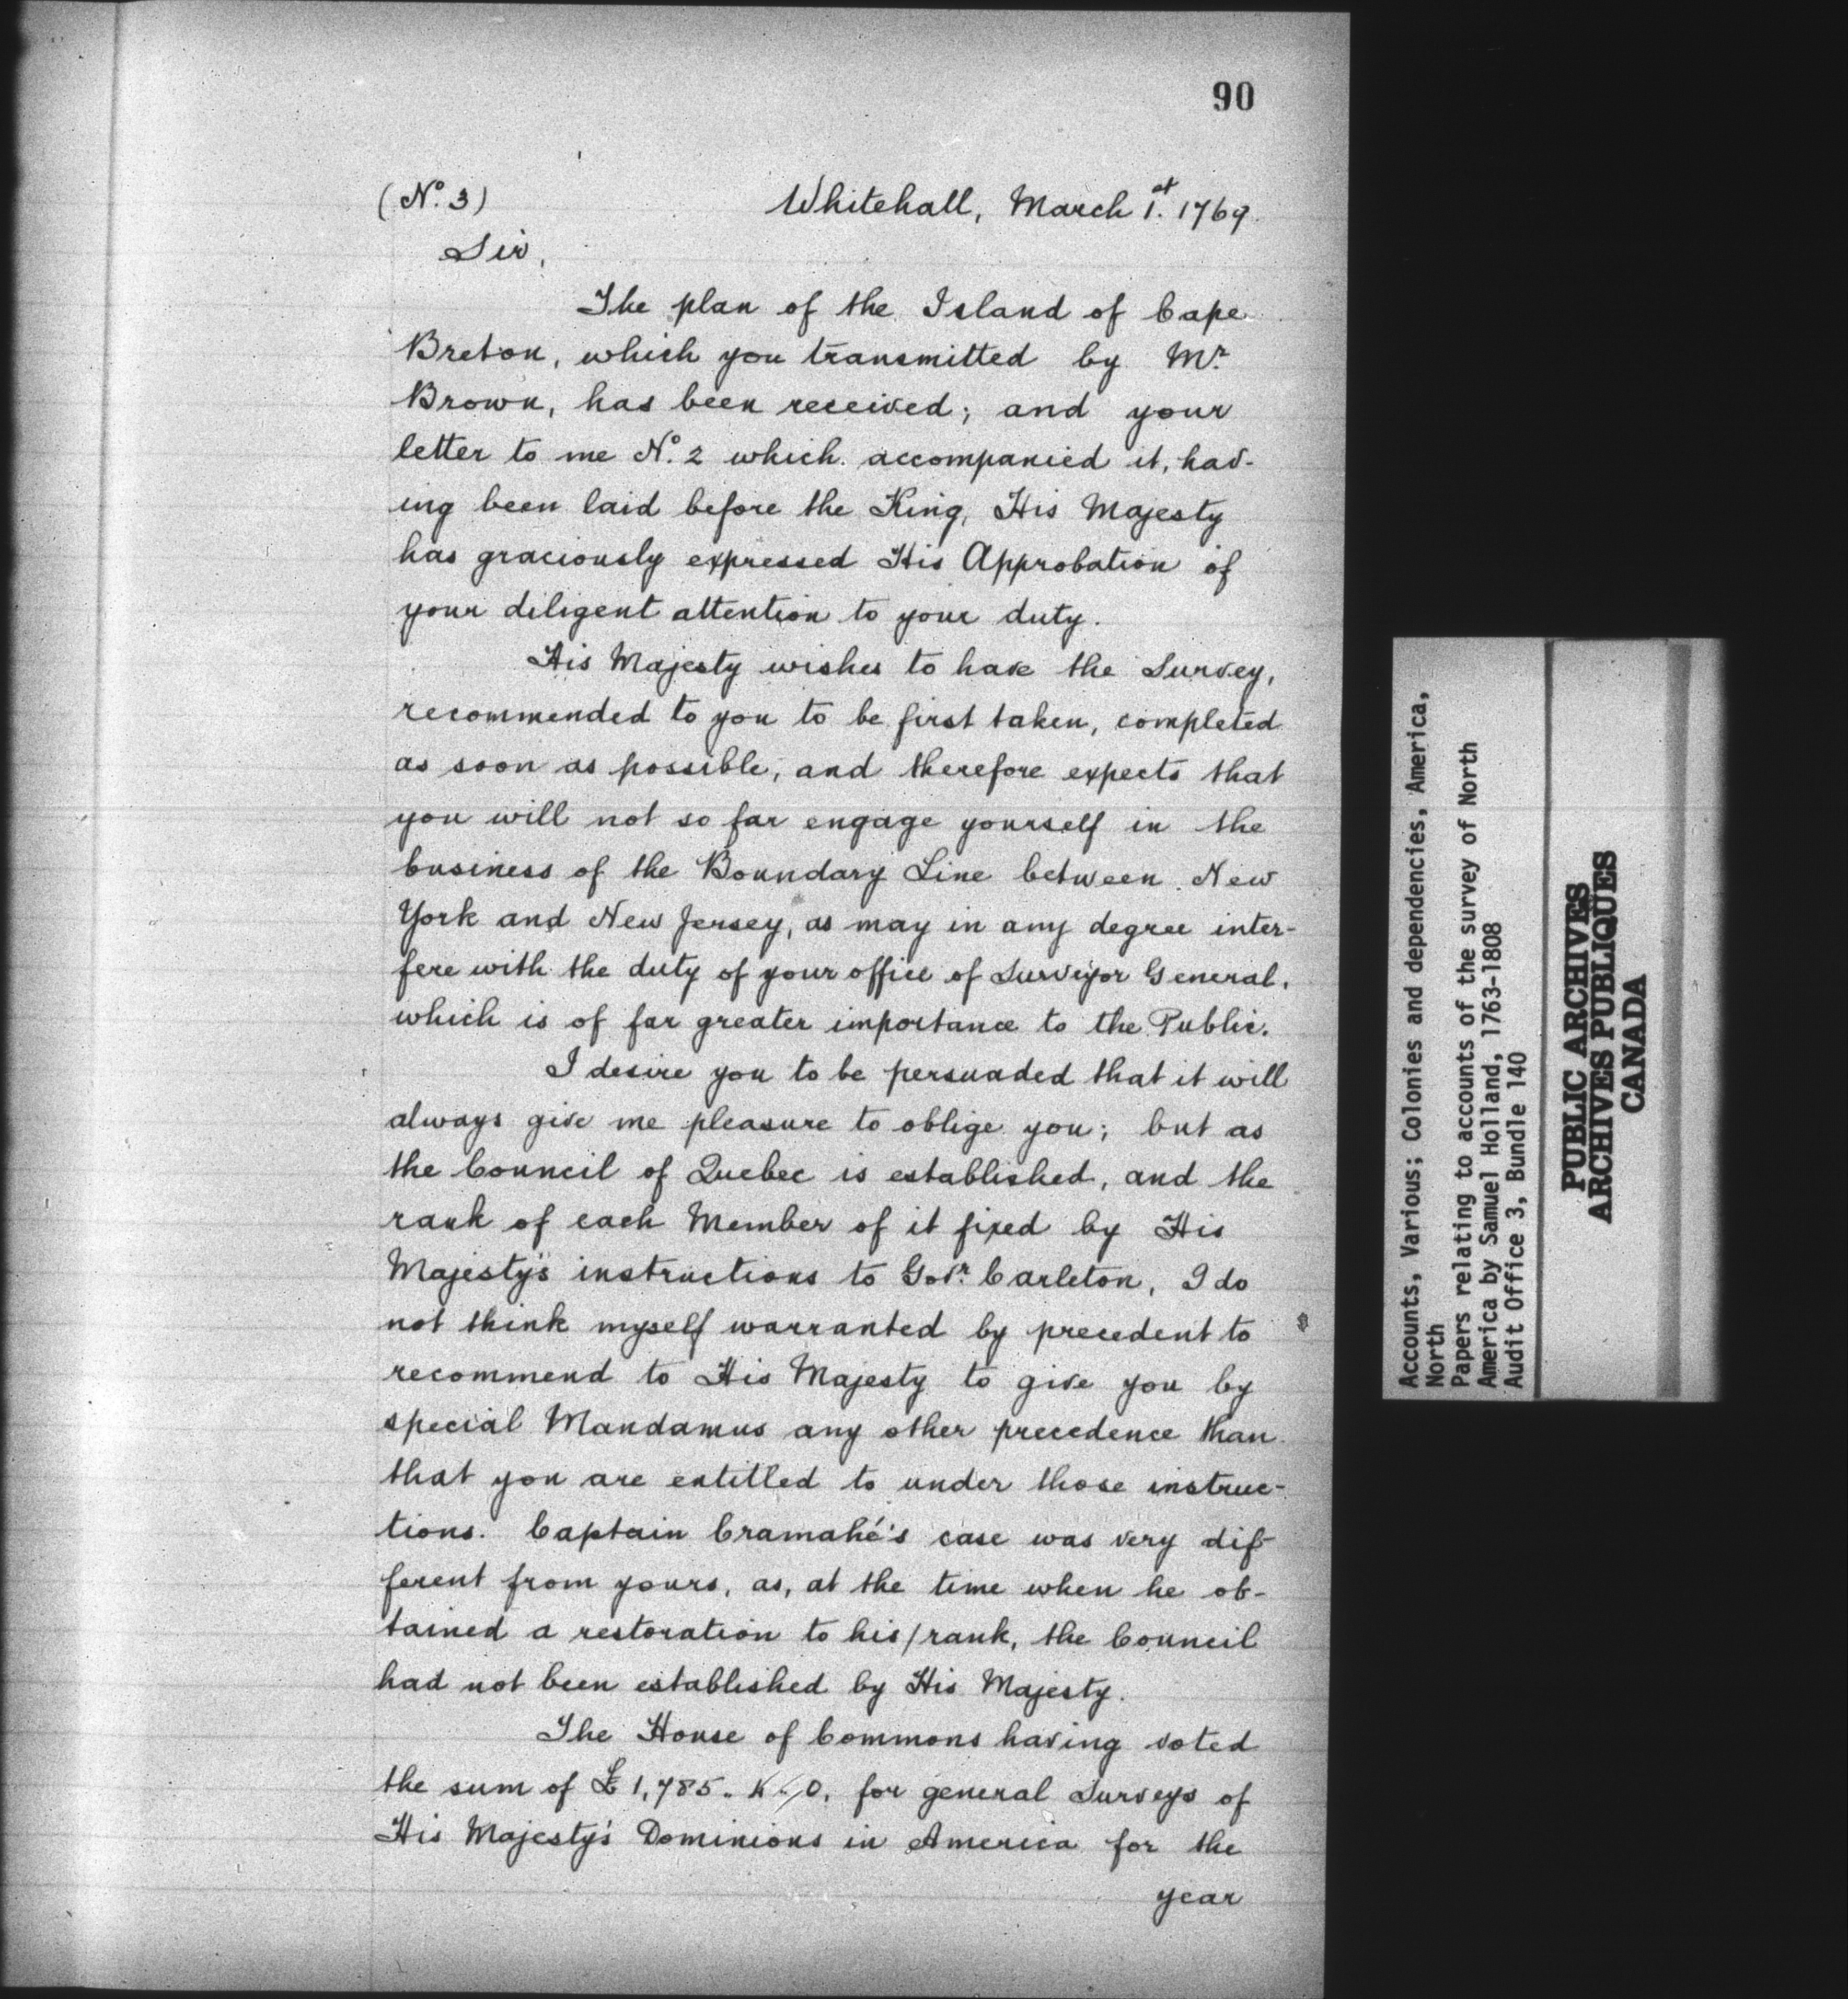 90
(No. 3) Whitehall, March 1st. 1769.
Sir,
The plan of the Island of Cape
Breton, which you transmitted by Mr.
Brown, has been received; and your
letter to me No. 2 which accompanied it, hav-
ing been laid before the King, His Majesty
has graciously expressed His Approbation of
your diligent attention to your duty.
His Majesty wishes to have the Survey,
recommended to you to be first taken, completed
as soon as possible, and therefore expects that
you will not so far engage yourself in the
business of the Boundary Line between New
York and New Jersey, as may in any degree inter-
fere with the duty of your office of Surveyor General,
which is of far greater importance to the Public.
I desire you to be persuaded that it will
always give me pleasure to oblige you; but as
the Council of Quebec is established, and the
rank of each Member of it fixed by His
Majesty's instructions to Govr. Carleton, I do
not think myself warranted by precedent to
recommend to His Majesty to give you by
special Mandamus any other precedence than
that you are entitled to under those instruc-
tions. Captain Cramahé's case was very dif-
ferent from yours, as, at the time when he ob-
tained a restoration to his/rank, the Council
had not been established by His Majesty.
The House of Commons having voted
the sum of £1,785. for general Surveys of
His Majesty's Dominions in America for the
year
Accounts, Various; Colonies and dependencies, America,
North
Papers relating to accounts of the survey of North
America by Samuel Holland, 1763-1808
Audit Office 3, Bundle 140
PUBLIC ARCHIVES
ARCHIVES PUBLIQUES
CANADA